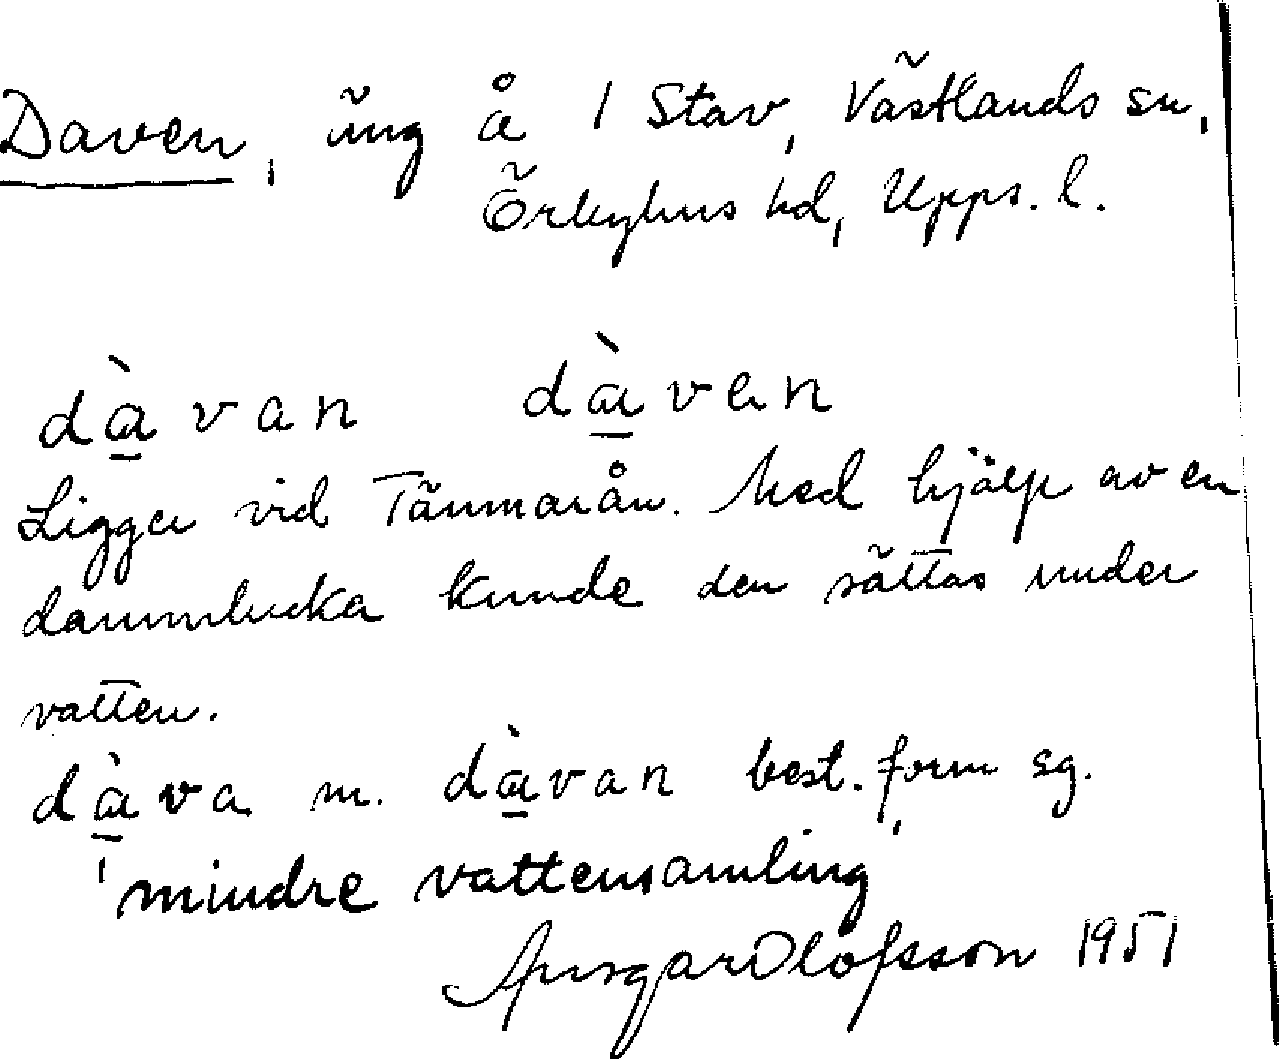 Daven, äng å 1 Stav, Västlands sn,
Örbyhus hd, Upps. l.
dàvan dàvan
Ligger vid Tämnarån. Med hjälp av en
dammlucka kunde den sättas under
vatten.
dàva m. dàvan best. form sg.
'mindre vattensamling'
Ansgar Olofsson 1951